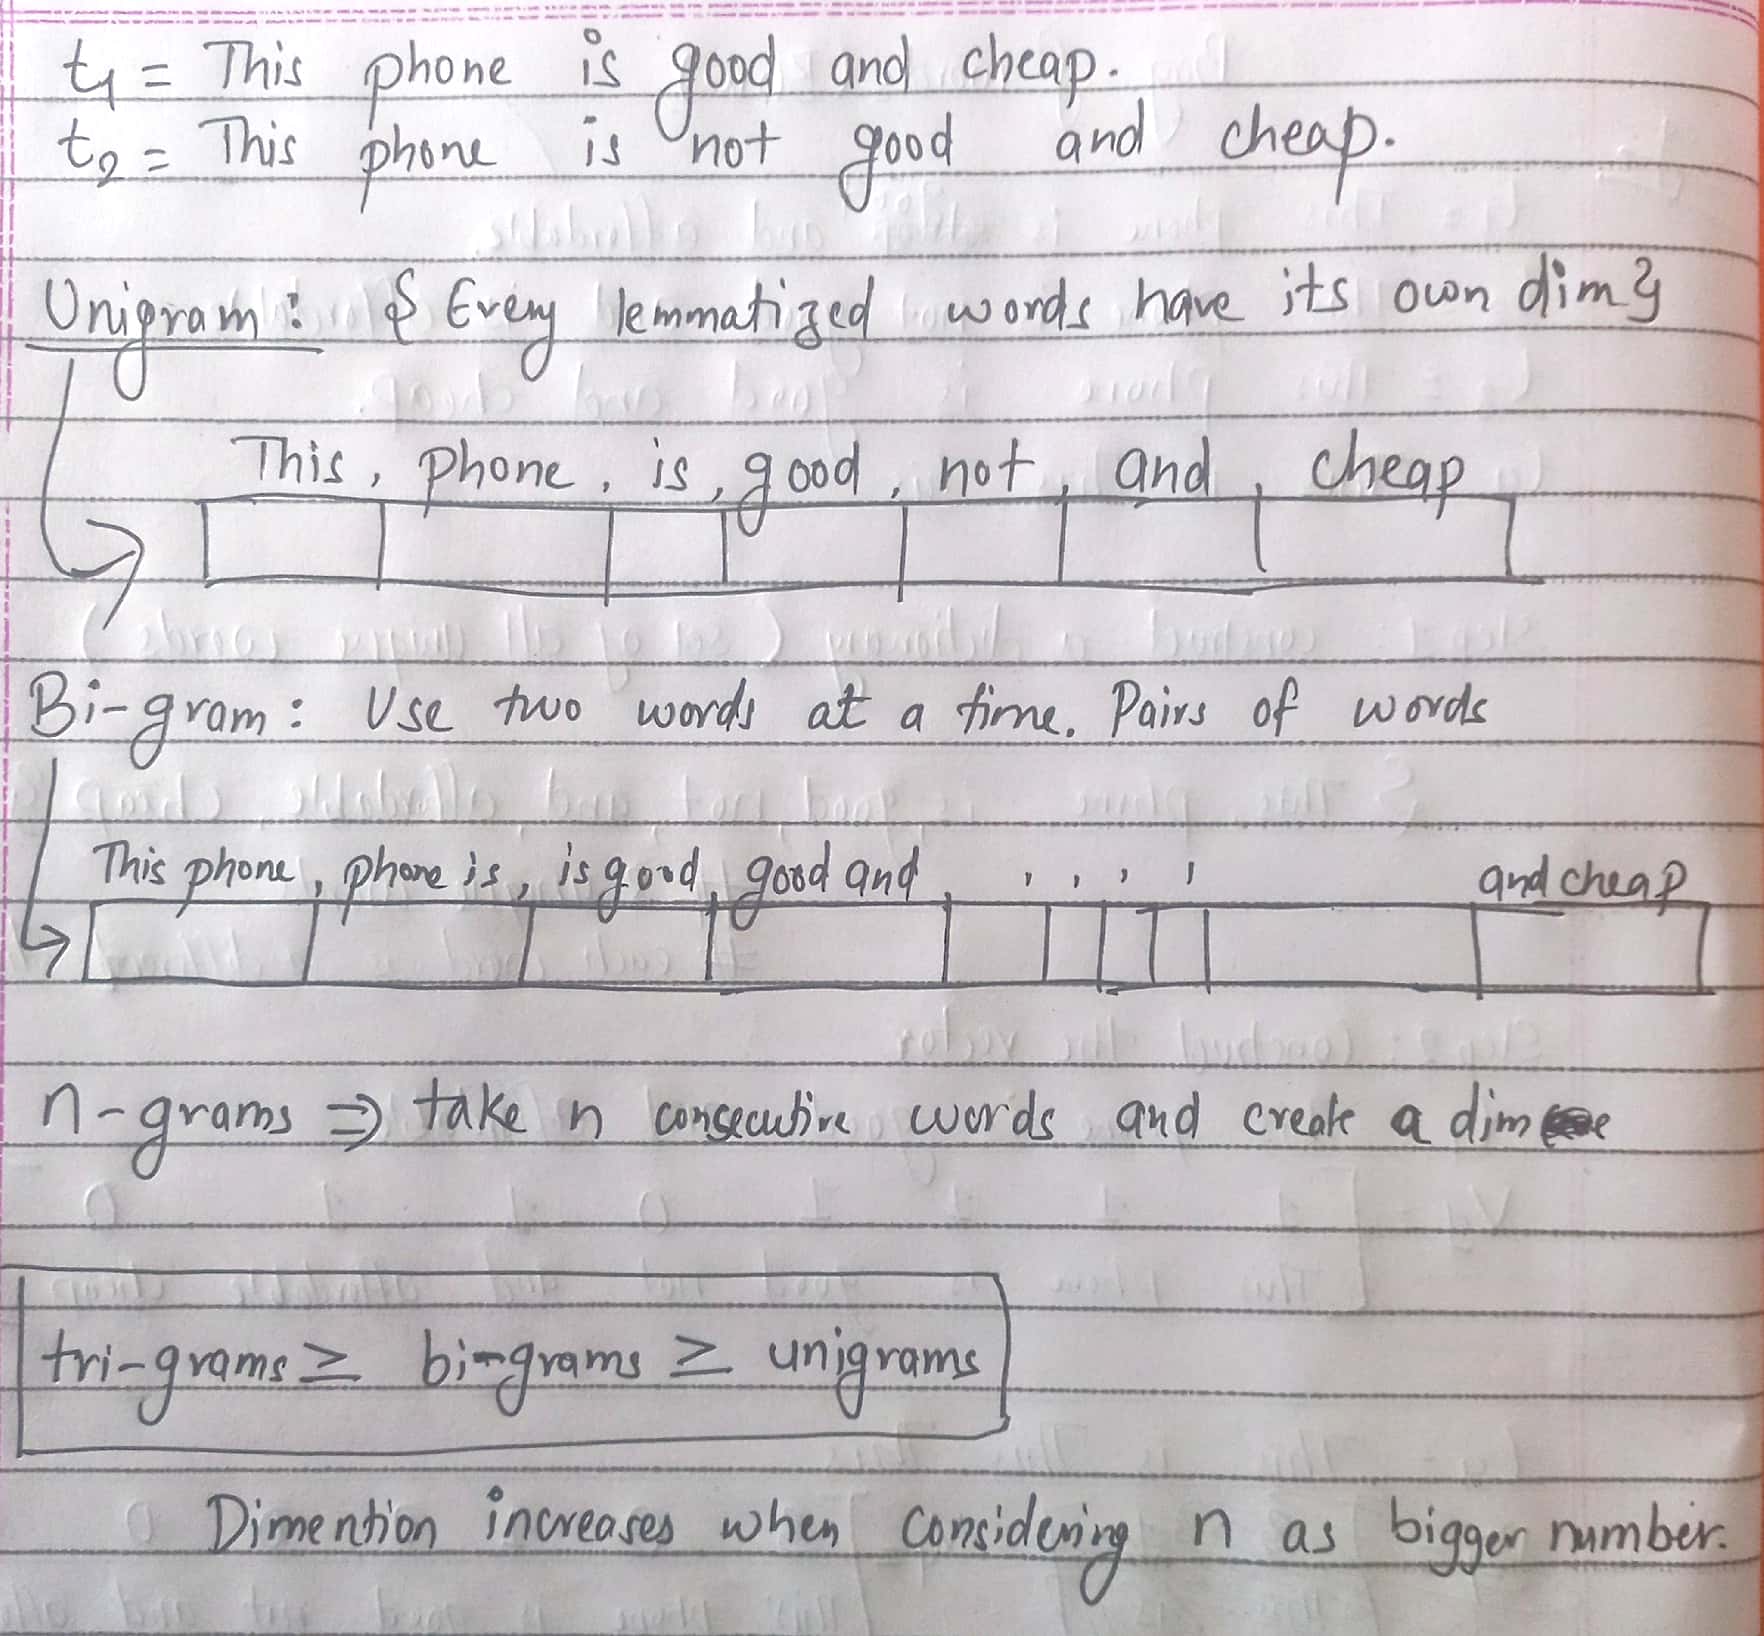 t1 = This phone is good and cheap.
t2 = This phone is not good and cheap.
Unigram: { Every lemmatized words have its own dim }
This, phone, is, good, not, and, cheap
Bi-gram: Use two words at a time. Pairs of words
This phone, phone is, is good, good and, , , , , and cheap
n-grams ⇒ take n consecutive words and create a dim
tri-grams ≥ bi-grams ≥ unigrams
Dimention increases when considering n as bigger number.